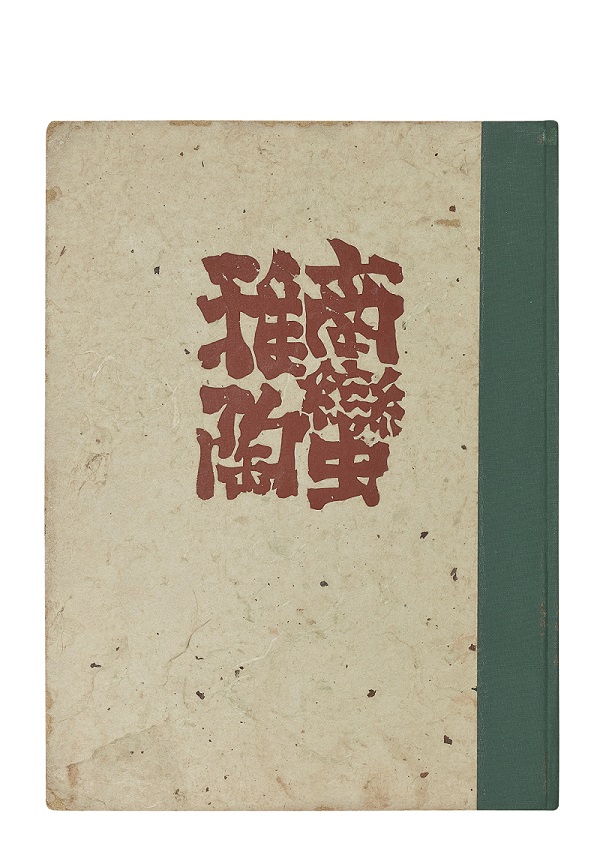 南蠻
雅陶